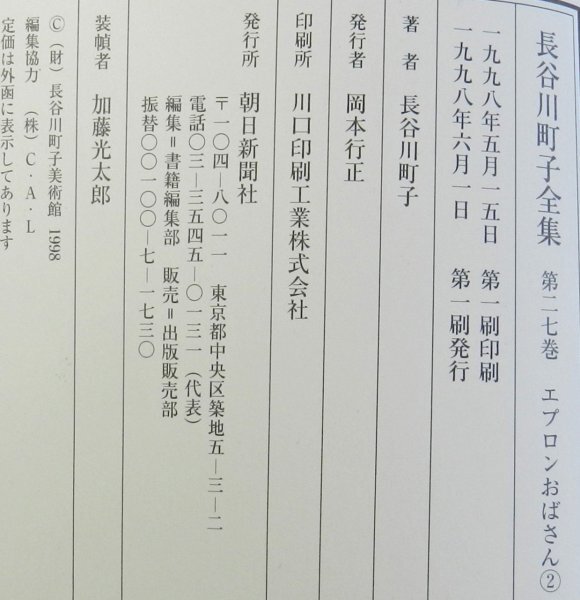 長谷川町子全集 第二七巻 エプロンおばさん②
一九九八年五月一五日 第一刷印刷
一九九八年六月一日 第一刷発行
著者 長谷川町子
発行者 岡本行正
印刷所 川口印刷工業株式会社
発行所 朝日新聞社
〒一〇四―八〇一一 東京都中央区築地五―三―二
電話〇三―三五四五―〇一三一（代表）
編集＝書籍編集部 販売＝出版販売部
振替〇〇一〇〇―七―一七三〇
装幀者 加藤光太郎
©（財）長谷川町子美術館 1998
編集協力 （株）C・A・L
定価は外函に表示してあります